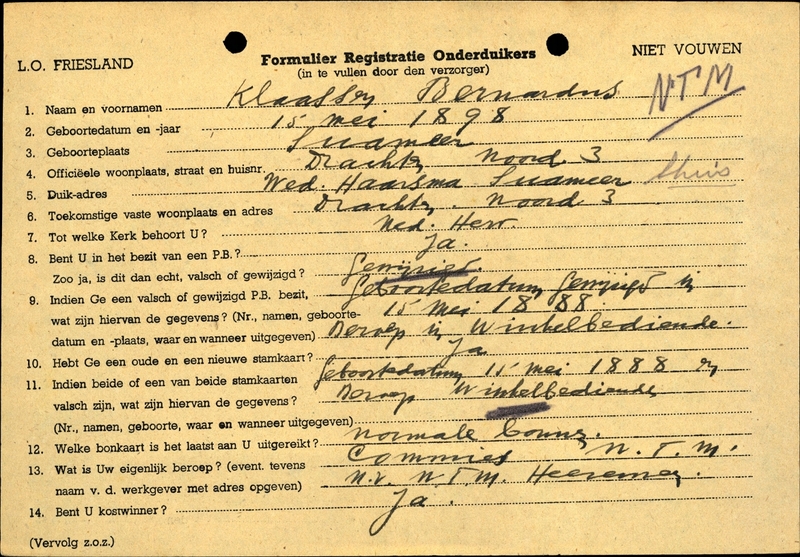 L.O. FRIESLAND
Formulier Registratie Onderduikers
NIET VOUWEN
(in te vullen door den verzorger)
NTM
1. Naam en voornamen Klaassen Bernardus
2. Geboortedatum en -jaar 15 mei 1898
3. Geboorteplaats Suameer
4. Officiëele woonplaats, straat en huisnr. Drachten Noord 3
5. Duik-adres Wed. Haarsma Suameer thuis
6. Toekomstige vaste woonplaats en adres Drachten. Noord 3
7. Tot welke Kerk behoort U? Ned. Herv.
8. Bent U in het bezit van een P.B.? Ja.
Zoo ja, is dit dan echt, valsch of gewijzigd? Gewijzigd.
9. Indien Ge een valsch of gewijzigd P.B. bezit, Geboortedatum Gewijzigd in
wat zijn hiervan de gegevens? (Nr., namen, geboorte- 15 Mei 1888
datum en -plaats, waar en wanneer uitgegeven) Beroep in Winkelbediende.
10. Hebt Ge een oude en een nieuwe stamkaart? Ja
11. Indien beide of een van beide stamkaarten Geboortedatum 15 mei 1888 en
valsch zijn, wat zijn hiervan de gegevens? Beroep Winkelbediende
(Nr., namen, geboorte, waar en wanneer uitgegeven)
12. Welke bonkaart is het laatst aan U uitgereikt? normale
13. Wat is Uw eigenlijk beroep? (event. tevens Commies N.T.M.
naam v. d. werkgever met adres opgeven) N.V. N.T.M. Heerenveen.
14. Bent U kostwinner? Ja.
(Vervolg z.o.z.)